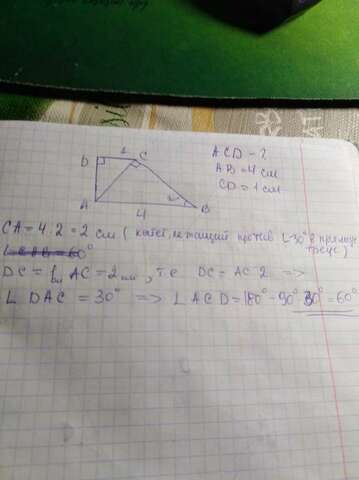 ACD - ?
AB = 4 см
CD = 1 см
D 1 C
A 4 B
CA = 4 : 2 = 2 см (катет, лежащий против ∠30° в прямоуг
треуг)
60°
DC = 1см AC = 2см, т.е DC = AC : 2 =>
∠ DAC = 30° => ∠ ACD = 180° - 90° - 30° = 60°